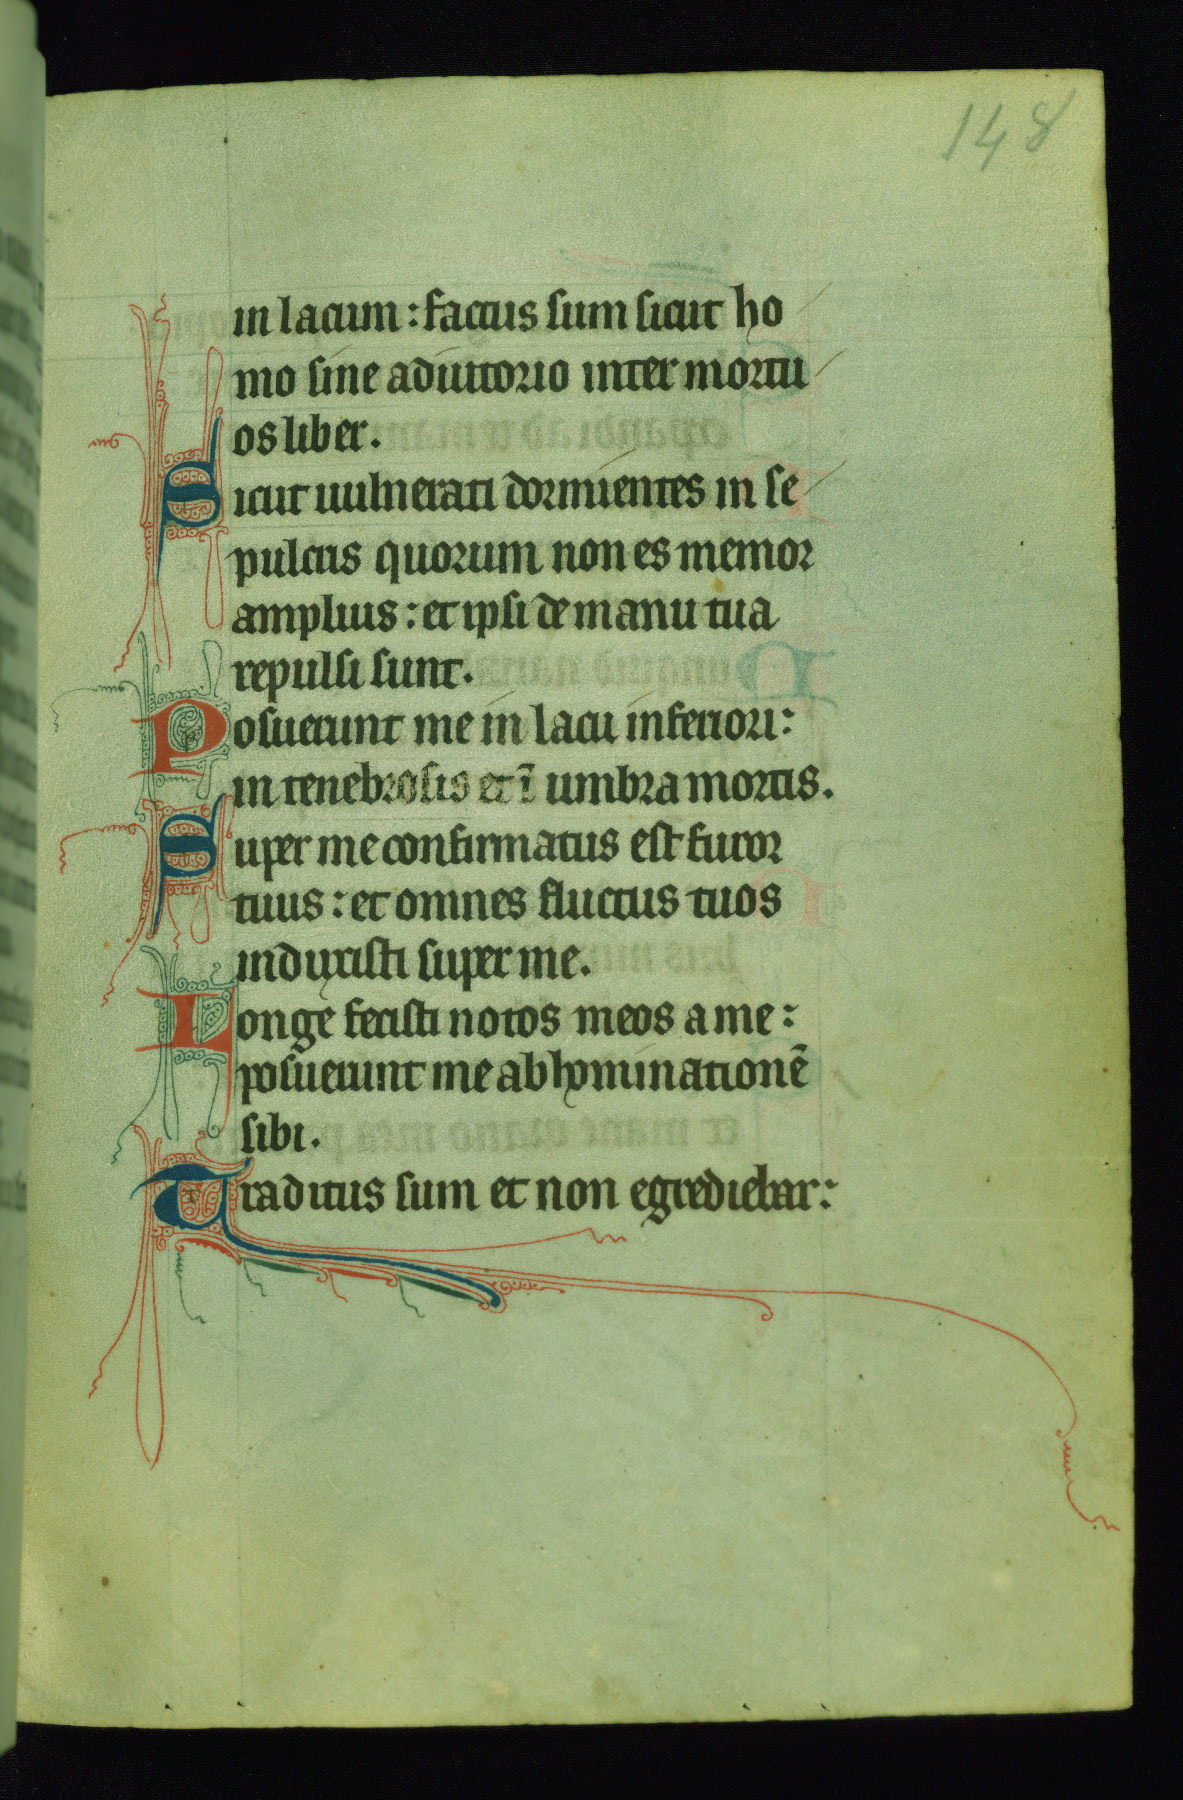 148
in lacum : factus sum sicut ho
mo sine adiutorio inter mortu
os liber.
Sicut uulnerati dormientes in se
pulcris quorum non es memor
amplius : et ipsi de manu tua
repulsi sunt.
Posuerunt me in lacu inferiori :
in tenebrosis et ī umbra mortis.
Super me confirmatus est furor
tuus : et omnes fluctus tuos
induxisti super me.
Longe fecisti notos meos a me :
posuerunt me abhominationē
sibi.
Traditus sum et non egrediebar :